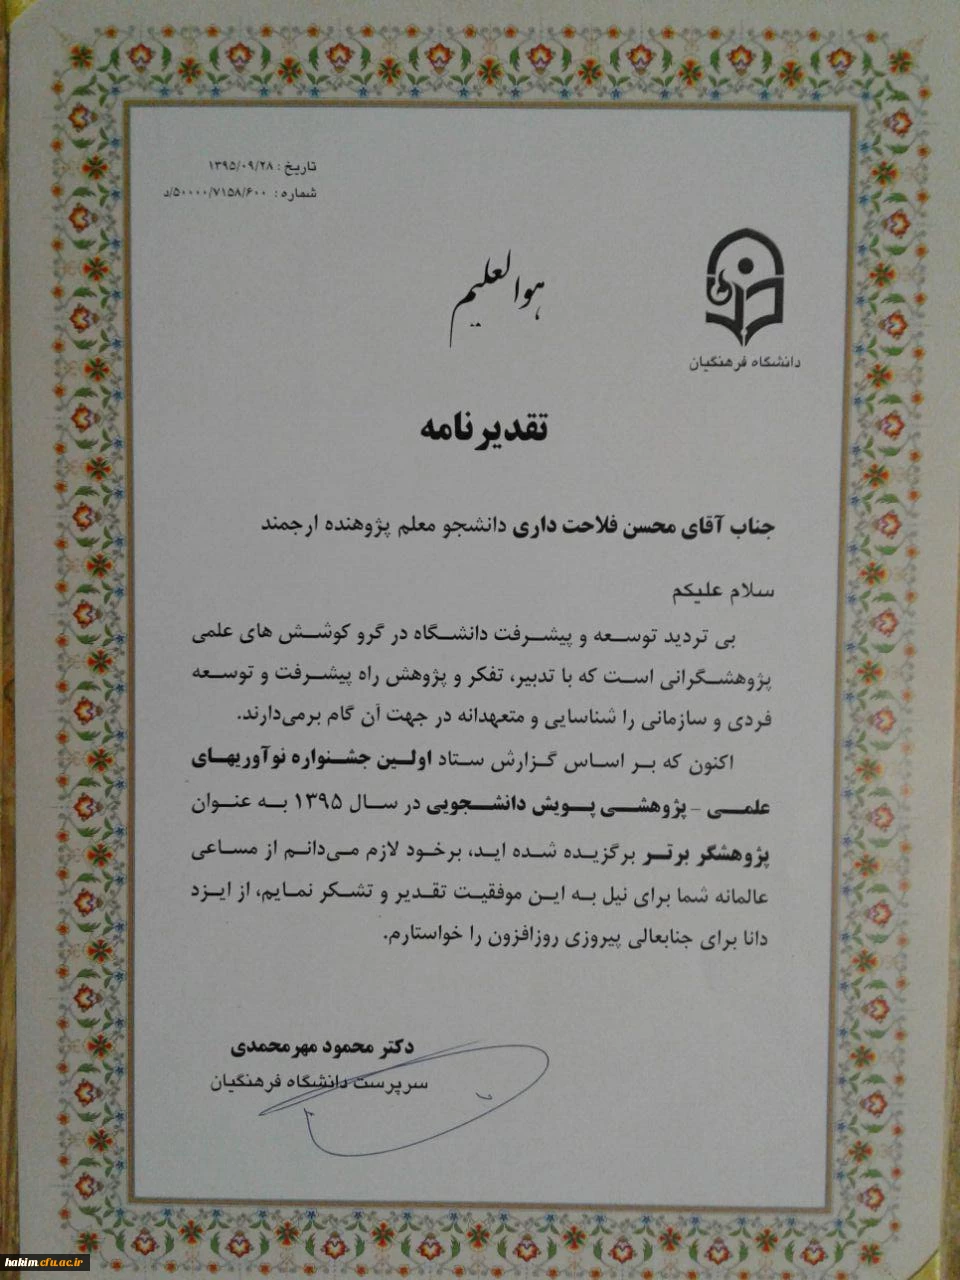 تاریخ : ۱۳۹۵/۰۹/۲۸
شماره : ۵۰۰۰۰/۷۱۵۸/۶۰۰/د
هوالعلیم
دانشگاه فرهنگیان
تقدیرنامه
جناب آقای محسن فلاحت داری دانشجو معلم پژوهنده ارجمند
سلام علیکم
بی تردید توسعه و پیشرفت دانشگاه در گرو کوشش های علمی
پژوهشگرانی است که با تدبیر، تفکر و پژوهش راه پیشرفت و توسعه
فردی و سازمانی را شناسایی و متعهدانه در جهت آن گام برمی‌دارند.
اکنون که بر اساس گزارش ستاد اولین جشنواره نوآوریهای
علمی - پژوهشی پویش دانشجویی در سال ۱۳۹۵ به عنوان
پژوهشگر برتر برگزیده شده اید، برخود لازم می‌دانم از مساعی
عالمانه شما برای نیل به این موفقیت تقدیر و تشکر نمایم، از ایزد
دانا برای جنابعالی پیروزی روزافزون را خواستارم.
دکتر محمود مهرمحمدی
سرپرست دانشگاه فرهنگیان
hakim.cfu.ac.ir